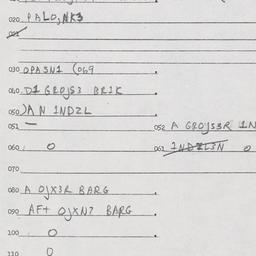 020 PALO,NK3
030 OPA3N1 (069
040 D1 GROJS3 BR1K
050 )A N 1NDZL
051
052 A GROJS3R 1N
060 0
061 1NDZL3N 0
070
080 A OJX3R BARG
090 AF+ OJXN7 BARG
100 0
110 0